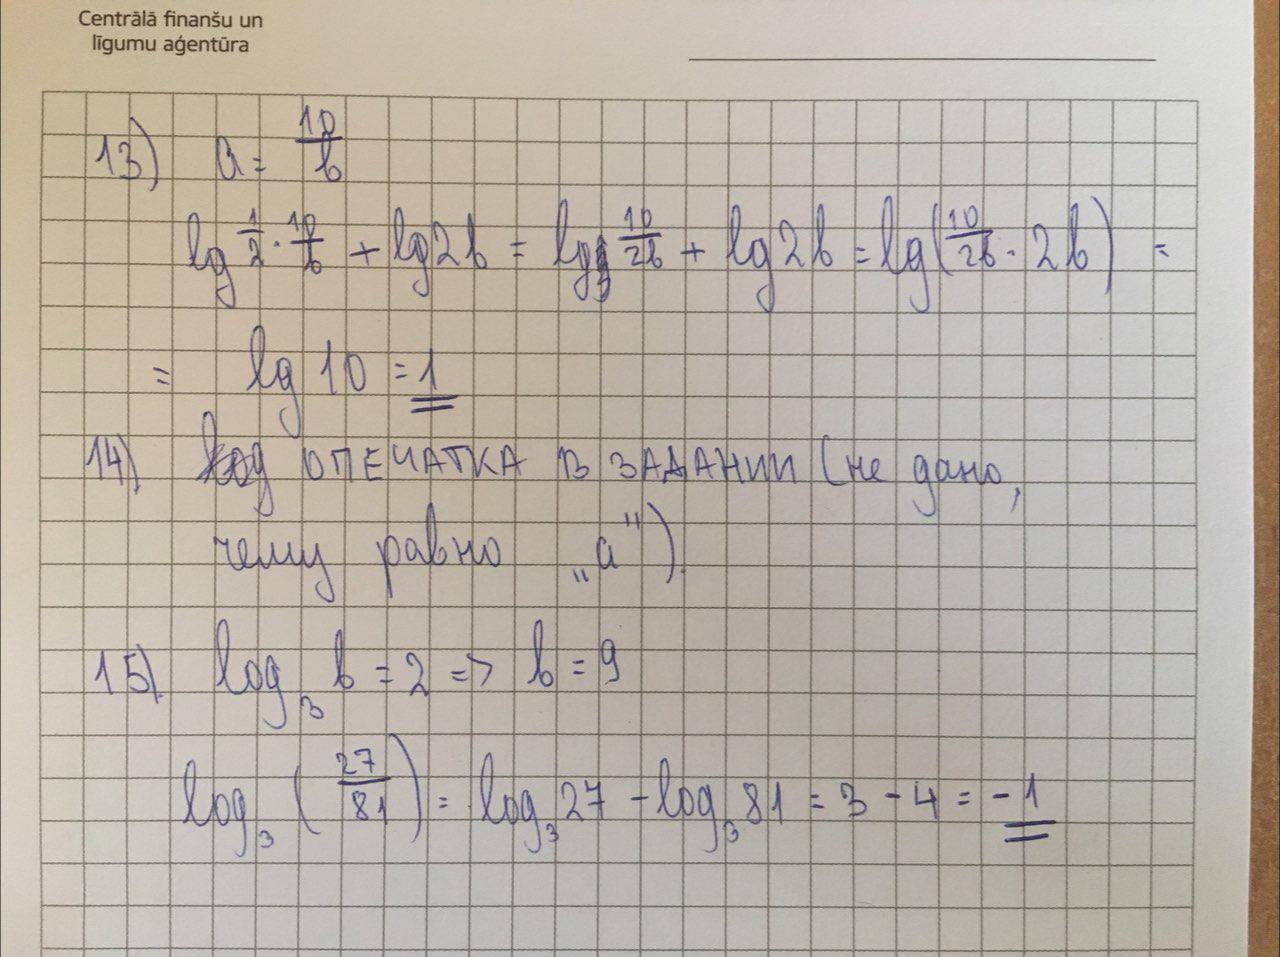 Centrālā finanšu un
līgumu aģentūra
13) a = 10/b
lg 1/2 · 10/b + lg2b = lg 10/2b + lg2b = lg(10/2b · 2b) =
= lg 10 = 1
14). ОПЕЧАТКА В ЗАДАНИИ (не дано,
чему равно „а").
15). log₃ b = 2 => b = 9
log₃ (27/81) = log₃27 - log₃81 = 3 - 4 = -1